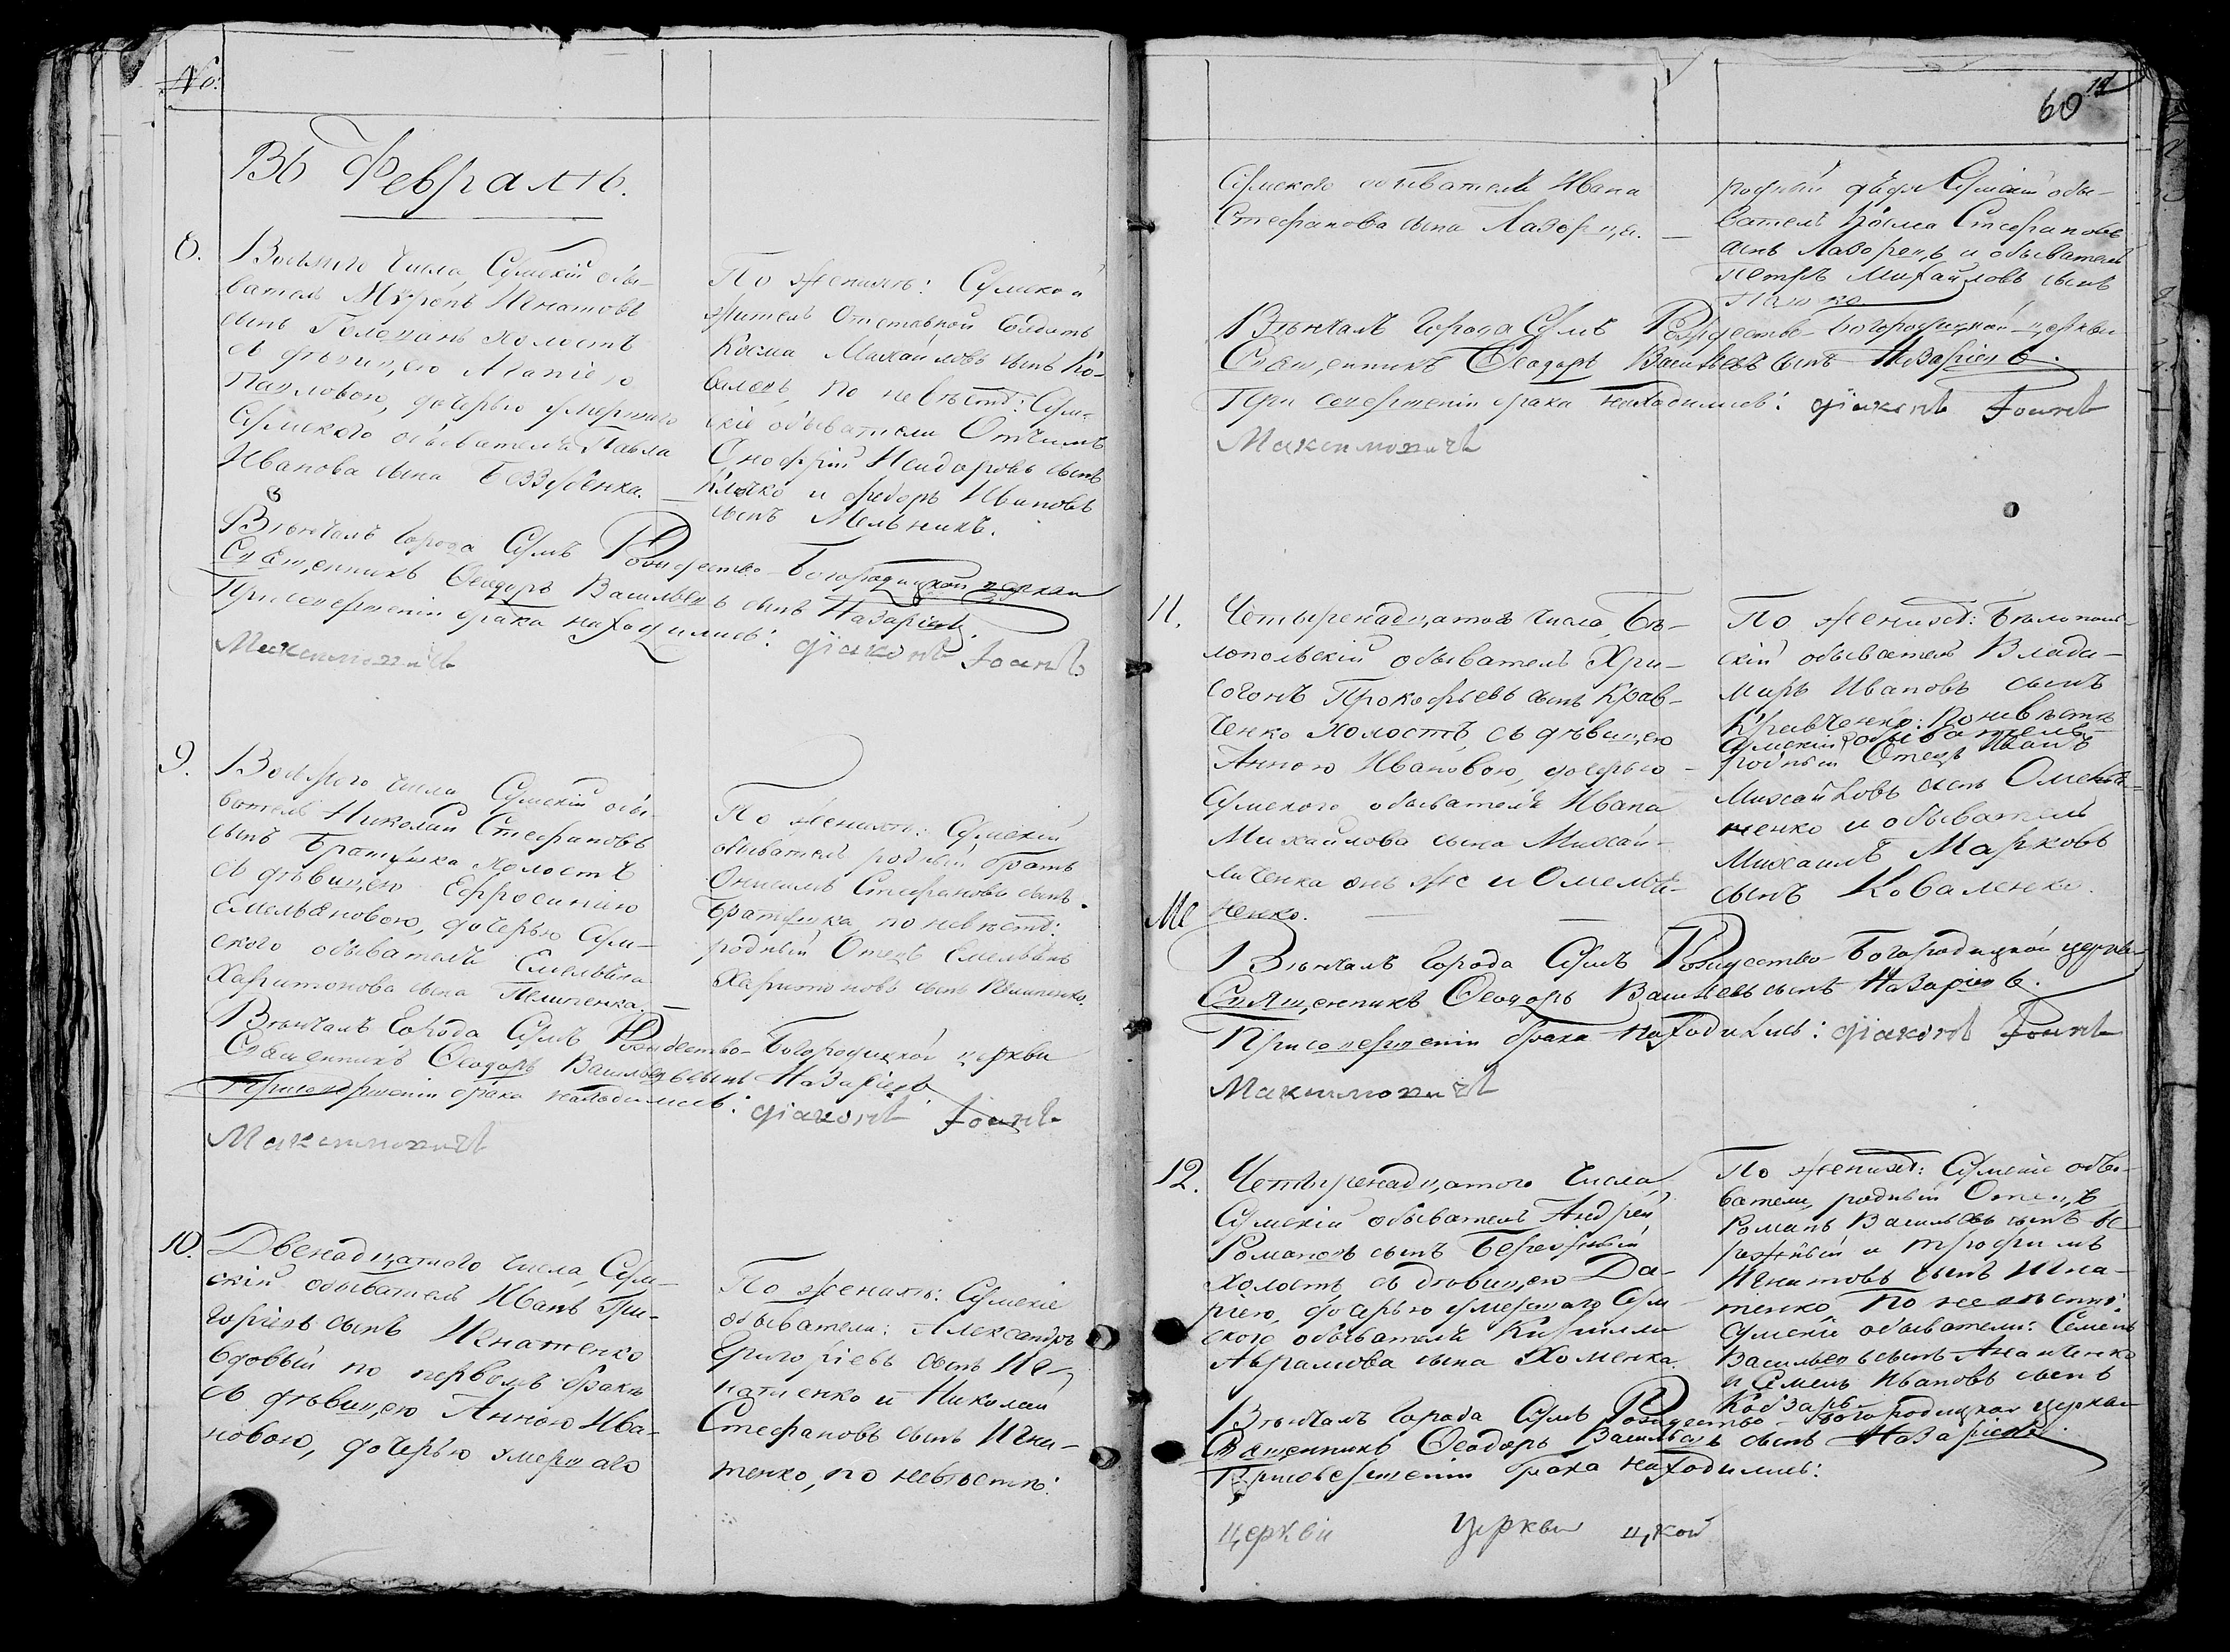 №:
Въ Февралѣ.
8.
Восмаго числа, Сумскій обы-
ватель Миронъ Игнатовъ
сынъ Голоданъ холостъ
съ дѣвицею
Павловою, дочерью умершаго
Сумскаго обывателя Павла
Иванова сына Беззубенка.
По женихѣ: Сумской
житель Отставной Солдатъ
Косма Михайловъ сынъ Ко-
валевъ, по невѣстѣ: Сум-
скіе обыватели Отчимъ
Онофрій Исидоровъ сынъ
и Федоръ Ивановъ
сынъ Мельникъ.
Вѣнчалъ города Сумъ Рождество-Богородицкой церкви
Священникъ Ѳеодоръ Васильевъ сынъ Назаріевъ.
При совершеніи брака находились: діаконъ Іоаннъ
Максимовичъ
9.
Восмаго числа Сумскій обы-
ватель Николай Стефановъ
сынъ Братушка холостъ
съ дѣвицею Ефросиніею
Емельяновою, дочерью Сум-
скаго обывателя Емельяна
Харитонова сына Пелипенка.
По женихѣ: Сумскій
обыватель родный братъ
Онисимъ Стефановъ сынъ
Братушка, по невѣстѣ:
родный Отецъ Емельянъ
Харитоновъ сынъ Пелипенко.
Вѣнчалъ города Сумъ Рождество-Богородицкой церкви
Священникъ Ѳеодоръ Васильевъ сынъ Назаріевъ.
При совершеніи брака находились: діаконъ Іоаннъ
Максимовичъ
10.
Двенадцатого числа, Сум-
скій обыватель Иванъ Гри-
горіевъ сынъ Игнатенко
вдовый по первомъ бракѣ
съ дѣвицею Анною Ива-
новою, дочерью умершаго
По женихѣ: Сумскіе
обыватели: Александръ
Григоріевъ сынъ Иг-
натенко и Николай
Стефановъ сынъ Игна-
тенко, по невѣстѣ:
60
Сумского обывателя Ивана
Стефанова сына Лазорца.
родный дядя Сумскій обы-
ватель Косма Стефановъ
сынъ Лазорецъ и обыватель
Петръ Михайловъ сынъ
Вѣнчалъ города Сумъ Рождество-Богородицкой церкви
Священникъ Ѳеодоръ Васильевъ сынъ Назаріевъ.
При совершеніи брака находились: діаконъ Іоаннъ
Максимовичъ
11.
Четыренадцатого числа, Бѣ-
лопольскій обыватель Хри-
согонъ Прокофьевъ сынъ Крав-
ченко холостъ, съ дѣвицею
Анною Ивановою, дочерью
Сумского обывателя Ивана
Михайлова сына Михай-
личенка онъ же и Омелья-
ненко.
По женихѣ: Бѣлополь-
скій обыватель Влади-
миръ Ивановъ сынъ
Кравченко: по невѣстѣ
Сумскій обыватель
родный Отецъ Иванъ
Михайловъ сынъ Омелья-
ненко и обыватель
Михаилъ Марковъ
сынъ Коваленко.
Ме
Вѣнчалъ города Сумъ Рождество-Богородицкой церкви
Священникъ Ѳеодоръ Васильевъ сынъ Назаріевъ.
При совершеніи брака находились: діаконъ Іоаннъ
Максимовичъ
12.
Четыренадцатого числа,
Сумскій обыватель Андрей
Романовъ сынъ Бережный
холостъ съ дѣвицею Да-
ріею, дочерью умершаго Сум-
ского обывателя Кирилла
Аврамова сына Хоменка.
По женихѣ: Сумскіе обы-
ватели, родный Отецъ
Романъ Васильевъ сынъ Бе-
режный и Трофимъ
Игнатовъ сынъ Игна-
тенко, по невѣстѣ:
Сумскіе обыватели: Семенъ
Васильевъ сынъ
и Семенъ Ивановъ сынъ
Кобзарь.
Вѣнчалъ города Сумъ Рождество-Богородицкой церкви
Священникъ Ѳеодоръ Васильевъ сынъ Назаріевъ.
При совершеніи брака находились:
церкви церкви цкой